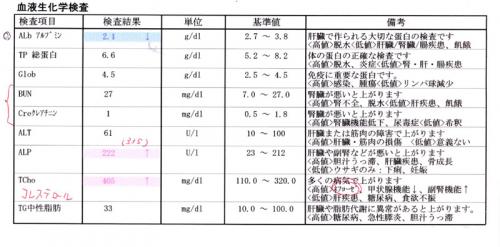 血液生化学検査
検査項目 検査結果 単位 基準値 備考
ALb アルブミン 2.1 ↓ g/dl 2.7 ～ 3.8 肝臓で作られる大切な蛋白の検査です
<高値>脱水<低値>肝臓/腎臓/腸疾患、飢餓
TP 総蛋白 6.6 g/dl 5.2 ～ 8.2 体の蛋白の正確な検査です
<高値>脱水、炎症<低値>腎・肝・腸疾患
Glob 4.5 g/dl 2.5 ～ 4.5 免疫に重要な蛋白です。
<高値>感染、腫瘍<低値>リンパ球減少
BUN 27 mg/dl 7.0 ～ 27.0 腎臓が悪いと上がります
<高値>腎不全、脱水<低値>肝疾患、飢餓
Creクレアチニン 1 mg/dl 0.5 ～ 1.8 腎臓が悪いと上がります
<高値>腎臓機能低下、尿毒症<低値>希釈
ALT 61 U/l 10 ～ 100 肝臓または筋肉の障害で上がります
<高値>肝臓・筋肉の損傷 <低値>意義ない
(315)
ALP 222 ↑ U/l 23 ～ 212 肝臓や副腎などが悪いと上がります
<高値>胆汁うっ滞、肝臓疾患、骨成長
<低値>ウサギのみ：下痢、妊娠
TCho 405 ↑ mg/dl 110.0 ～ 320.0 多くの病気で上がります
<高値>ネフローゼ、甲状腺機能↓、副腎機能↑
<低値>肝疾患、糖尿病、食欲不振
コレステロール
TG中性脂肪 33 mg/dl 10.0 ～ 100.0 肝臓や脂肪代謝に異常があると上がります。
<高値>糖尿病、急性膵炎、胆汁うっ滞